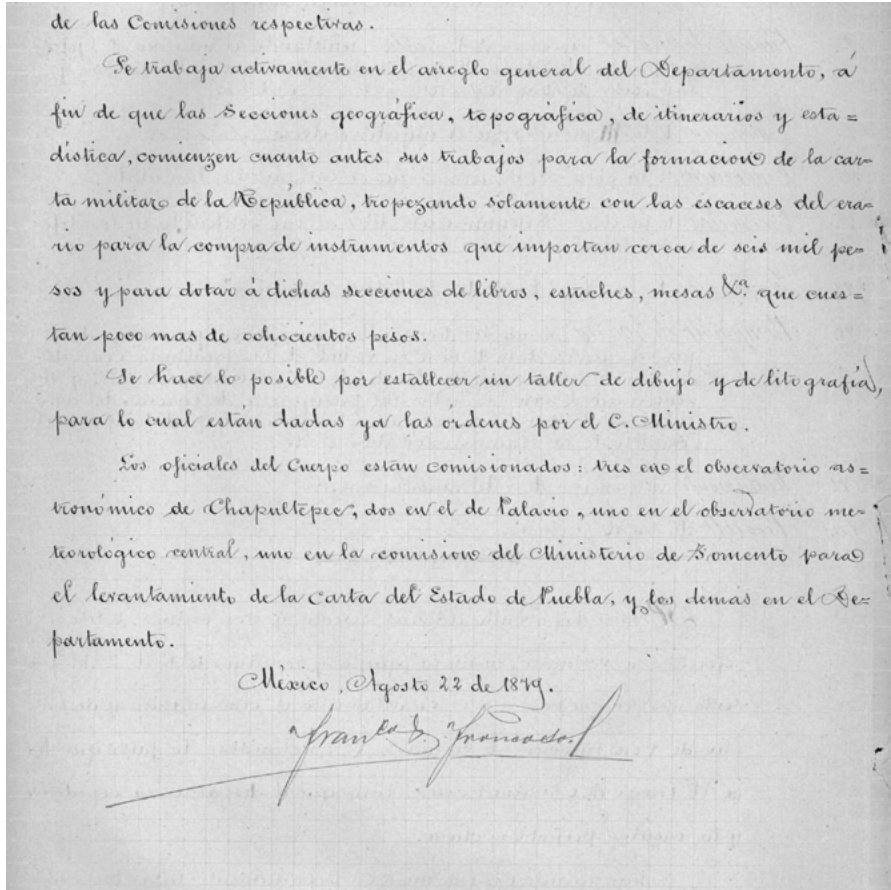 de las Comisiones respectivas.
Se trabaja activamente en el arreglo general del Departamento, á
fin de que las Secciones geográfica, topográfica, de itinerarios y esta=
dística, comienzen cuanto antes sus trabajos para la formacion de la car=
ta militar de la República, tropezando solamente con las escaceses del era=
rio para la compra de instrumentos que importan cerca de seis mil pe=
sos y para dotar á dichas secciones de libros, estuches, mesas &a. que cues=
tan poco mas de ochocientos pesos.
Se hace lo posible por establecer un taller de dibujo y de litografía,
para lo cual están dadas ya las órdenes por el C. Ministro.
Los oficiales del Cuerpo están comisionados: tres en el observatorio as=
tronómico de Chapultepec, dos en el de Palacio, uno en el observatorio me=
teorológico central, uno en la comision del Ministerio de Fomento para
el levantamiento de la carta del Estado de Puebla, y los demás en el De=
partamento.
México, Agosto 22 de 1879.